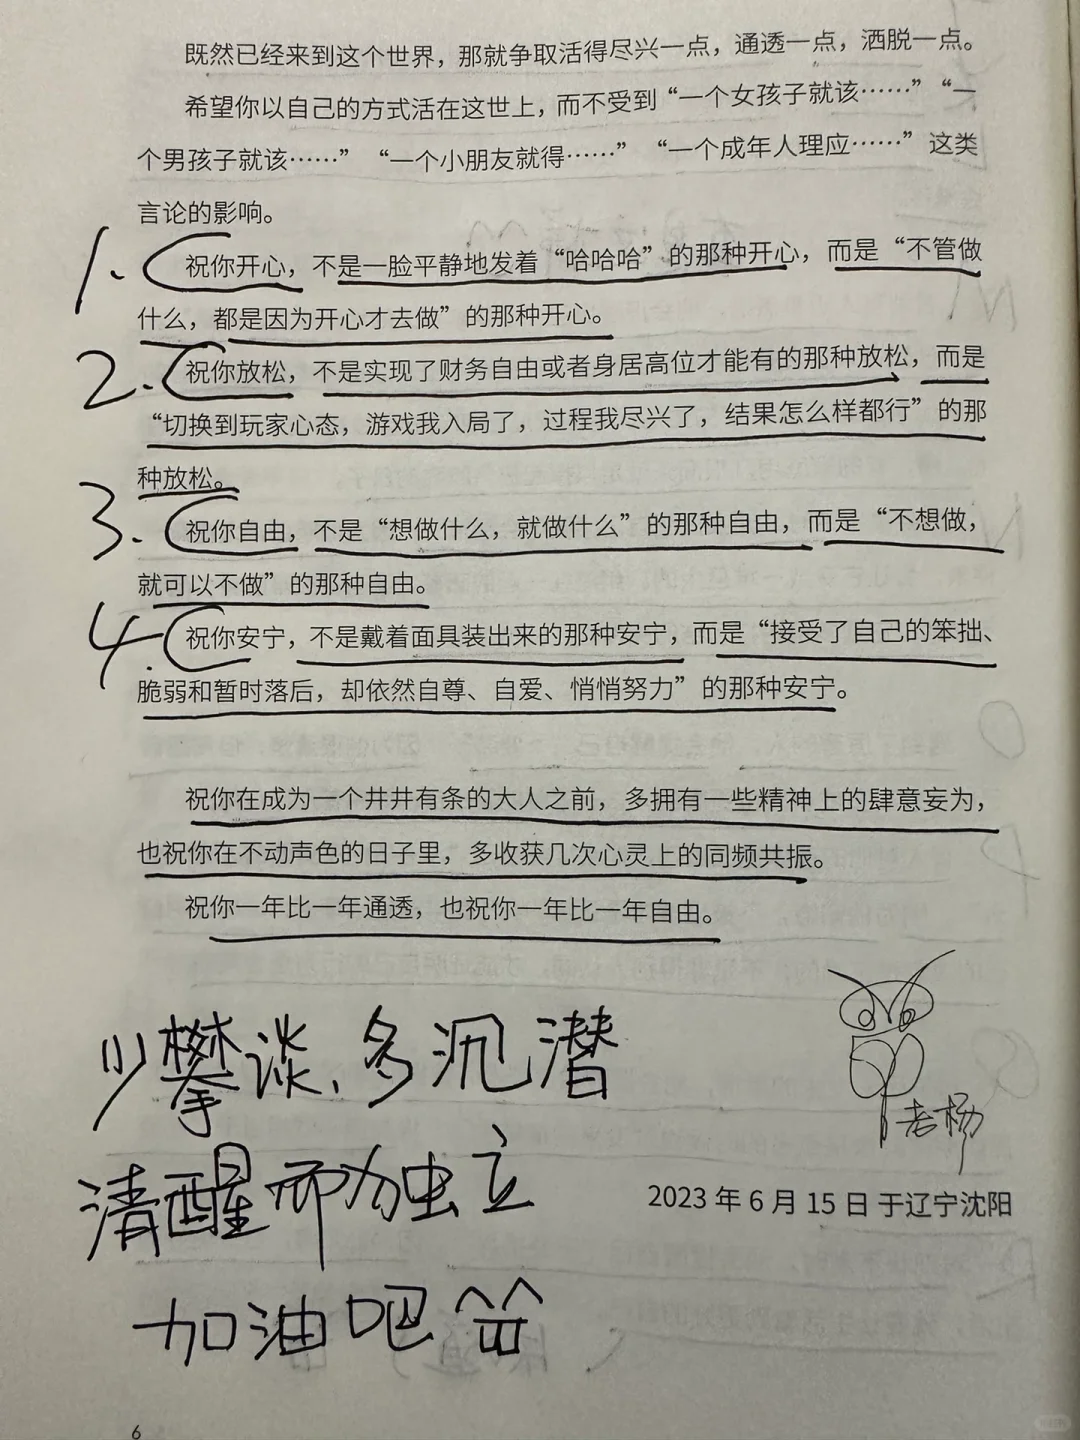 既然已经来到这个世界，那就争取活得尽兴一点，通透一点，洒脱一点。
希望你以自己的方式活在这世上，而不受到“一个女孩子就该……”“一
个男孩子就该……”“一个小朋友就得……”“一个成年人理应……”这类
言论的影响。
1. 祝你开心，不是一脸平静地发着“哈哈哈”的那种开心，而是“不管做
什么，都是因为开心才去做”的那种开心。
2. 祝你放松，不是实现了财务自由或者身居高位才能有的那种放松，而是
“切换到玩家心态，游戏我入局了，过程我尽兴了，结果怎么样都行”的那
种放松。
3. 祝你自由，不是“想做什么，就做什么”的那种自由，而是“不想做，
就可以不做”的那种自由。
4. 祝你安宁，不是戴着面具装出来的那种安宁，而是“接受了自己的笨拙、
脆弱和暂时落后，却依然自尊、自爱、悄悄努力”的那种安宁。
祝你在成为一个井井有条的大人之前，多拥有一些精神上的肆意妄为，
也祝你在不动声色的日子里，多收获几次心灵上的同频共振。
祝你一年比一年通透，也祝你一年比一年自由。
少攀谈、多沉潜
清醒而独立
加油吧
老杨
2023 年 6 月 15 日 于辽宁沈阳
6